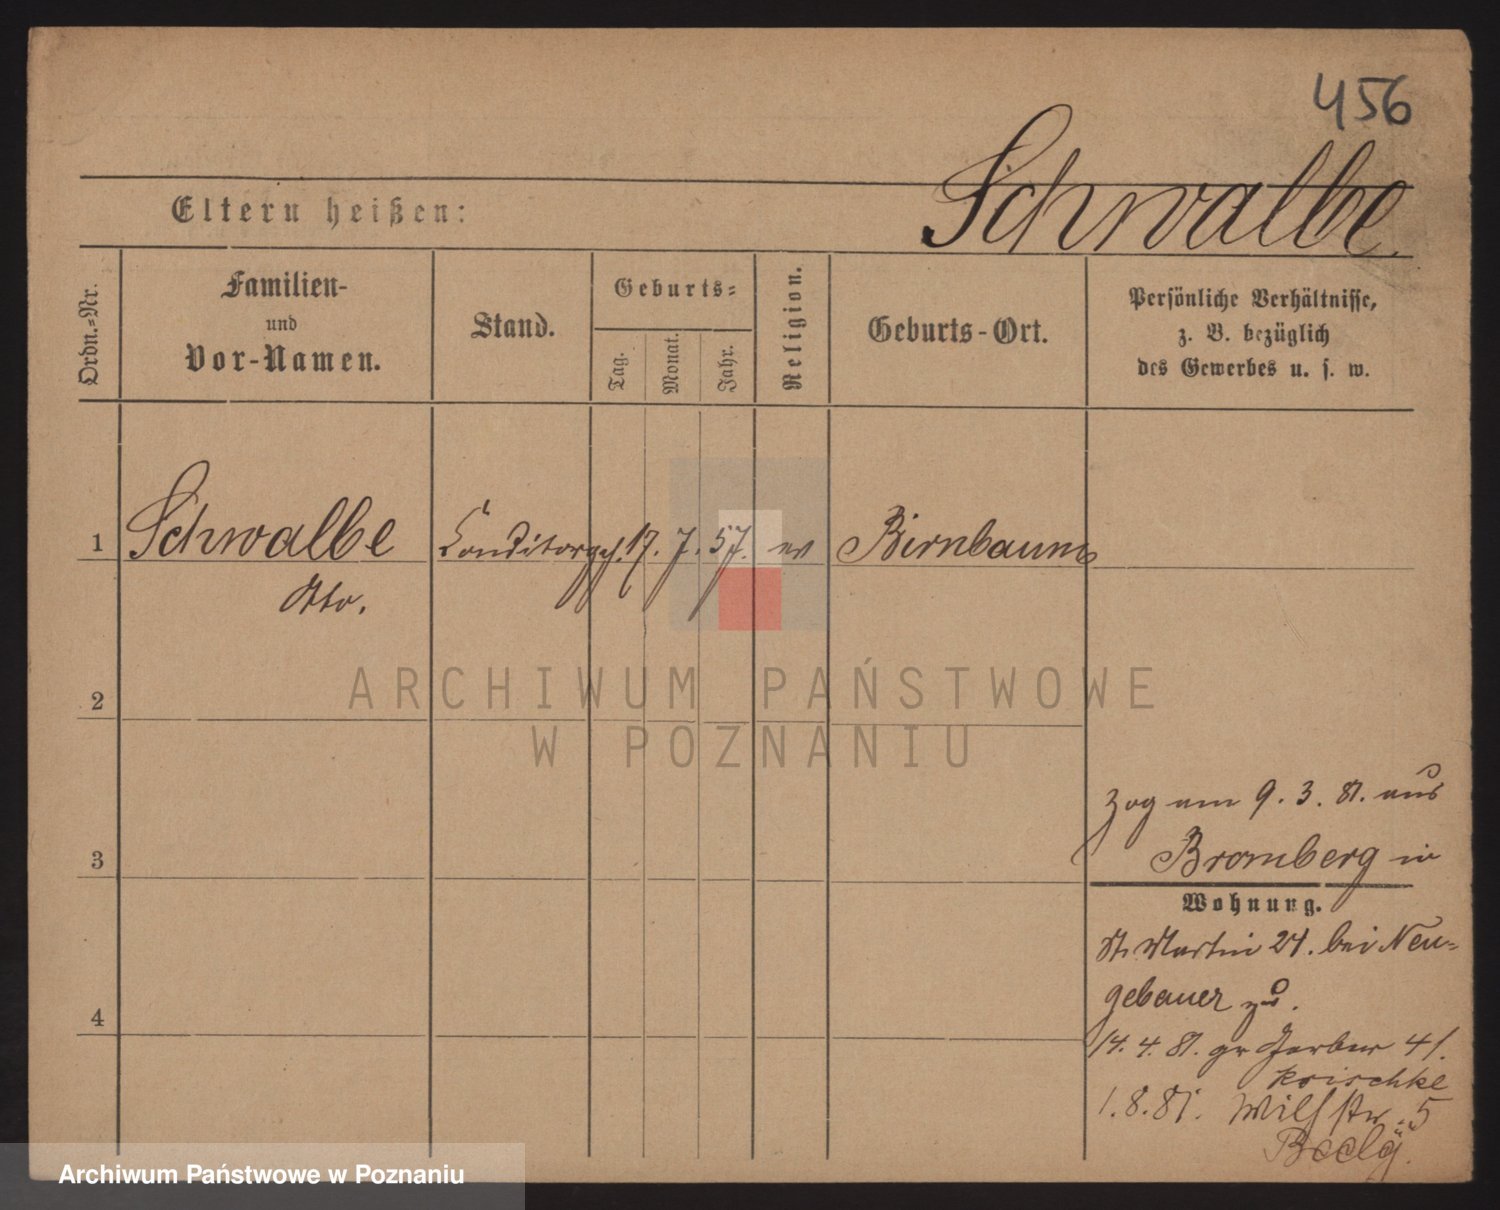 456
Schwalbe.
Eltern heißen:
Ordn.-Nr.
Familien-
und
Vor-Namen.
Stand.
Geburts-
Tag.
Monat.
Jahr.
Religion.
Geburts-Ort.
Persönliche Verhältnisse,
z. B. bezüglich
des Gewerbes u. s. w.
1 Schwalbe Conditorgeh. 17. 7. 57. ev Birnbaum
Otto.
2
3
4
ARCHIWUM PAŃSTWOWE
W POZNANIU
zog am 9. 3. 81. aus
Bromberg in
Wohnung.
St. Martin 21. bei Neu-
gebauer zu.
14. 4. 81. gr Gerber 41.
Krischke
1. 8. 81. Wilhstr. 5
Beely.
Archiwum Państwowe w Poznaniu